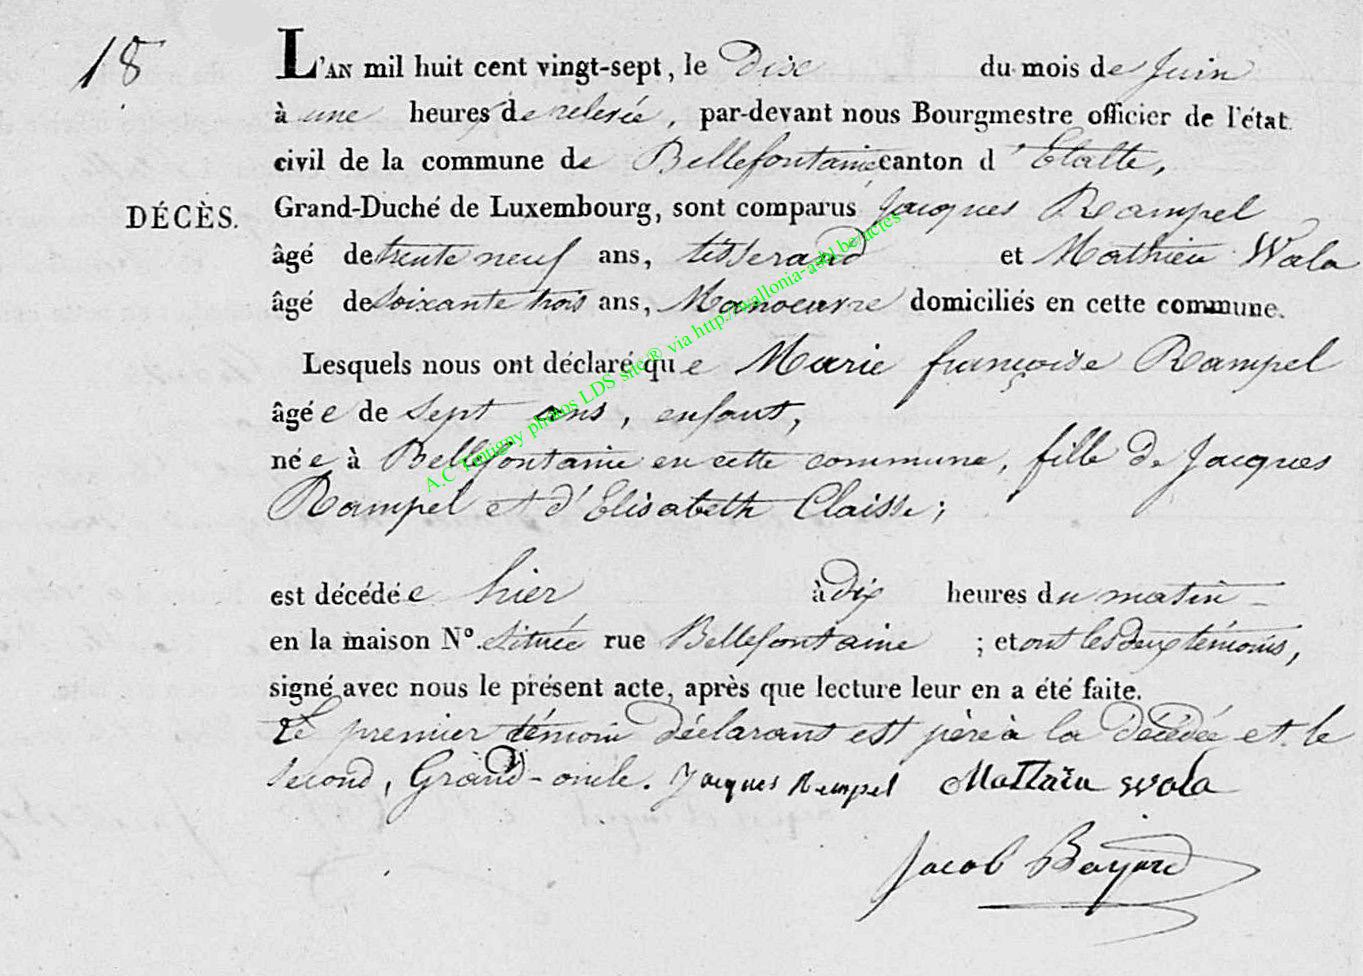 18
L'AN mil huit cent vingt-sept, le Dix du mois de Juin
à une heures de relevée, par-devant nous Bourgmestre officier de l'état
civil de la commune de Bellefontaine canton d'Etalle,
DÉCÈS.
Grand-Duché de Luxembourg, sont comparus Jacques Rampel
âgé de trente neuf ans, tisserand et Mathieu Wala
âgé de soixante trois ans, Manoeuvre domiciliés en cette commune.
Lesquels nous ont déclaré que Marie françoise Rampel
âgée de Sept ans, enfant,
née à Bellefontaine en cette commune, fille de Jacques
Rampel et d'Elisabeth Claisse;
est décédée hier à dix heures du matin
en la maison N°. située rue Bellefontaine ; et ont les deux témoins,
signé avec nous le présent acte, après que lecture leur en a été faite.
Le premier témoin déclarant est père à la décédée et le
second, Grand-oncle. Jacques Rempel Mathieu Wala
Jacob Bayard
A.C Tontigny photos LDS site ® via http://wallonia-asbl.be/actes